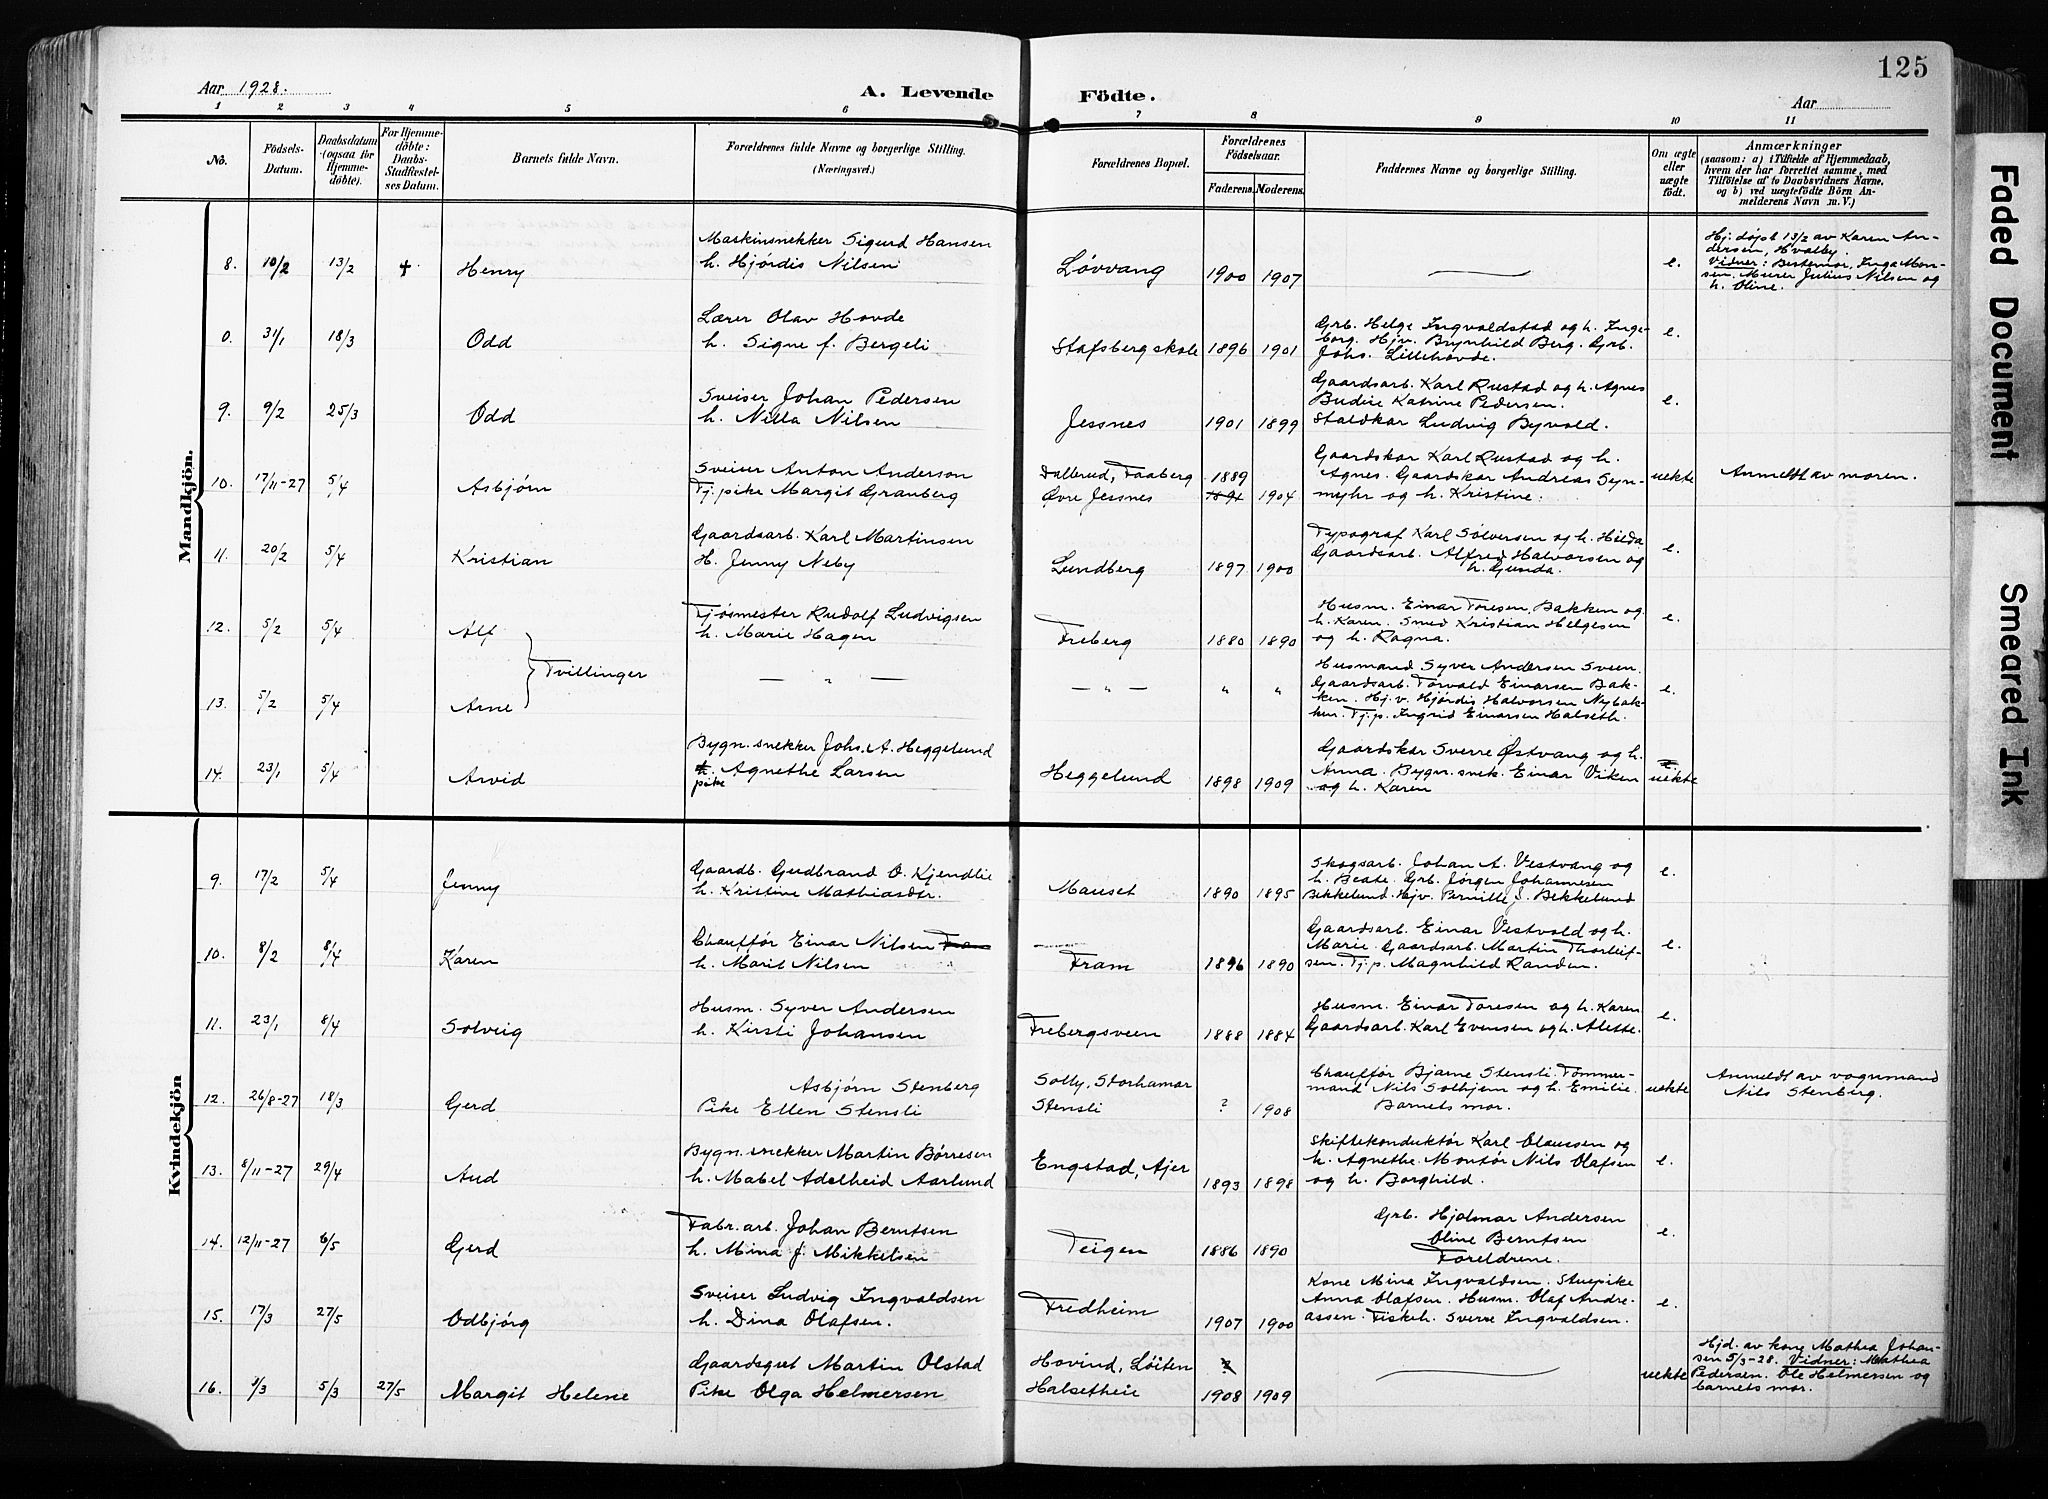 125
Aar 1928.
A. Levende Födte.
Aar
1 2 3 4 5 6 7 8 9 10 11
No.
Födsels-
Datum.
Daabsdatum
(ogsaa for
Hjemme-
döbte).
For Hjemme-
döbte:
Daabs-
Stadfæstel-
ses Datum.
Barnets fulde Navn.
Forældrenes fulde Navne og borgerlige Stilling.
(Næringsvei.)
Forældrenes Bopæl.
Forældrenes
Födselsaar.
Faderens. Moderens.
Faddernes Navne og borgerlige Stilling.
Om ægte
eller
uægte
födt.
Anmærkninger
(saasom: a) i Tilfælde af Hjemmedaab,
hvem der har forrettet samme, med
Tilföielse af to Daabsvidners Navne,
og b) ved uægtefödte Börn An-
melderens Navn m. V.)
Mandkjön.
8. 10/2 13/2 + Henry
Maskinsnekker Sigurd Hansen
h. Hjørdis Nilsen
Løvvang 1900 1907 e.
Hj. døpt 13/2 av Karen An-
dersen, Hvalby.
Vidner: Bestemor, Inga Mon-
sen. Murer Julius Nilsen og
h. Oline.
0. 31/1 18/3 Odd
Lærer Olav Hovde
h. Signe f. Bergeli
Stafsberg skole 1896 1901
Grb. Helge Ingvaldstad og h. Inge-
borg. Hjv. Brynhild Berg. Grb.
Johs. Lillehovde.
e.
9. 9/2 25/3 Odd
Sveiser Johan Pedersen
h. Nilla Nilsen
Jessnes 1901 1899
Gaardsarb. Karl Rustad og h. Agnes
Budeie Katrine Pedersen.
Staldkar Ludvig Byvold.
e.
10. 17/11-27 5/4 Asbjørn
Sveiser Anton Anderson
Tj.pike Margit Granberg
Dallerud, Faaberg 1889
Øvre Jessnes 1894 1904
Gaardskar Karl Rustad og h.
Agnes. Gaardskar Andreas Syn-
myhr og h. Kristine.
uekte
Anmeldt av moren.
11. 20/2 5/4 Kristian
Gaardsarb. Karl Martinsen
H. Jenny Neby
Lundberg 1897 1900
Typograf Karl Sølversen og h. Hilda
Gaardsarb. Alfred Halvorsen og
h. Gunda.
e.
12. 5/2 5/4 Alf
Fjøsmester Rudolf Ludvigsen
h. Marie Hagen
Freberg 1880 1890
Husm. Einar Toresen, Bakken og
h. Karen. Smed Kristian Helgesen
og h. Ragna.
e.
Tvillinger
13. 5/2 5/4 Arne
— " — — " — " "
Husmand Syver Andersen Sveen.
Gaardsarb. Torvald Einarsen Bak-
ken. Hj.v. Hjørdis Halvorsen Nybak-
ken. Tj.p. Ingrid Einarsen Halseth.
e.
14. 23/1 5/4 Arvid
Bygn. snekker Johs. A. Heggelund
h. Agnethe Larsen
pike
Heggelund 1898 1909
Gaardskar Sverre Østvang og h.
Anna. Bygn. snek. Einar Viken
og h. Karen
uekte
Kvindekjön
9. 17/2 5/4 Jenny
Gaardb. Gudbrand O. Kjendlie
h. Kristine Mathiasdtr.
Mauset 1890 1895
Skogsarb. Johan A. Vestvang og
h. Beate. Grb. Jørgen Johannesen
Bekkelund. Hjv. Pernille J. Bekkelund
e.
10. 8/2 8/4 Karen
Chauffør Einar Nilsen Fram
h. Marit Nilsen
Fram 1896 1890
Gaardsarb. Einar Vestvold og h.
Marie. Gaardsarb. Martin Thorleif-
sen. Tj.p. Magnhild Randen.
e.
11. 23/1 8/4 Solveig
Husm. Syver Andersen
h. Kirsti Johansen
Frebergsveen 1888 1884
Husm. Einar Toresen og h. Karen
Gaardsarb. Karl Evensen og h. Alette.
e.
12. 26/8-27 18/3 Gerd
Asbjørn Stenberg
Pike Ellen Stensli
Solly, Storhamar
Stensli ? 1908
Chauffør Bjarne Stensli. Tømmer-
mand Nils Solhjem og h. Emilie.
Barnets mor.
uekte
Anmeldt av vognmand
Nils Stenberg.
13. 8/11-27 29/4 Aud
Bygn. snekker Martin Børresen
h. Mabel Adelheid Aarlund
Engstad, Ajer 1893 1898
Skiftekonduktør Karl Olaussen og
h. Agnethe. Montør Nils Olafsen
og h. Borghild.
e.
14. 12/11-27 6/5 Gerd
Fabr. arb. Johan Berntsen
h. Mina f. Mikkelsen
Teigen 1886 1890
Grb. Hjalmar Andersen
Oline Berntsen
Foreldrene.
e.
15. 17/3 27/5 Odbjørg
Sveiser Ludvig Ingvaldsen
h. Dina Olafsen.
Fredheim 1907 1900
Kone Mina Ingvaldsen. Stuepike
Anna Olafsen. Husm. Olaf Andre-
assen. Fiskeh. Sverre Ingvaldsen.
e.
16. 1/3 5/3 27/5 Margit Helene
Gaardsgut Martin Olstad
Pike Olga Helmersen
Hovind, Løiten ?
Halsetheie 1908 1909
uekte
Hjd. av kone Mathea Johan-
sen 5/3-28. Vidner: Mathea
Pedersen. Ole Helmersen og
barnets mor.
Faded Document
Smeared Ink